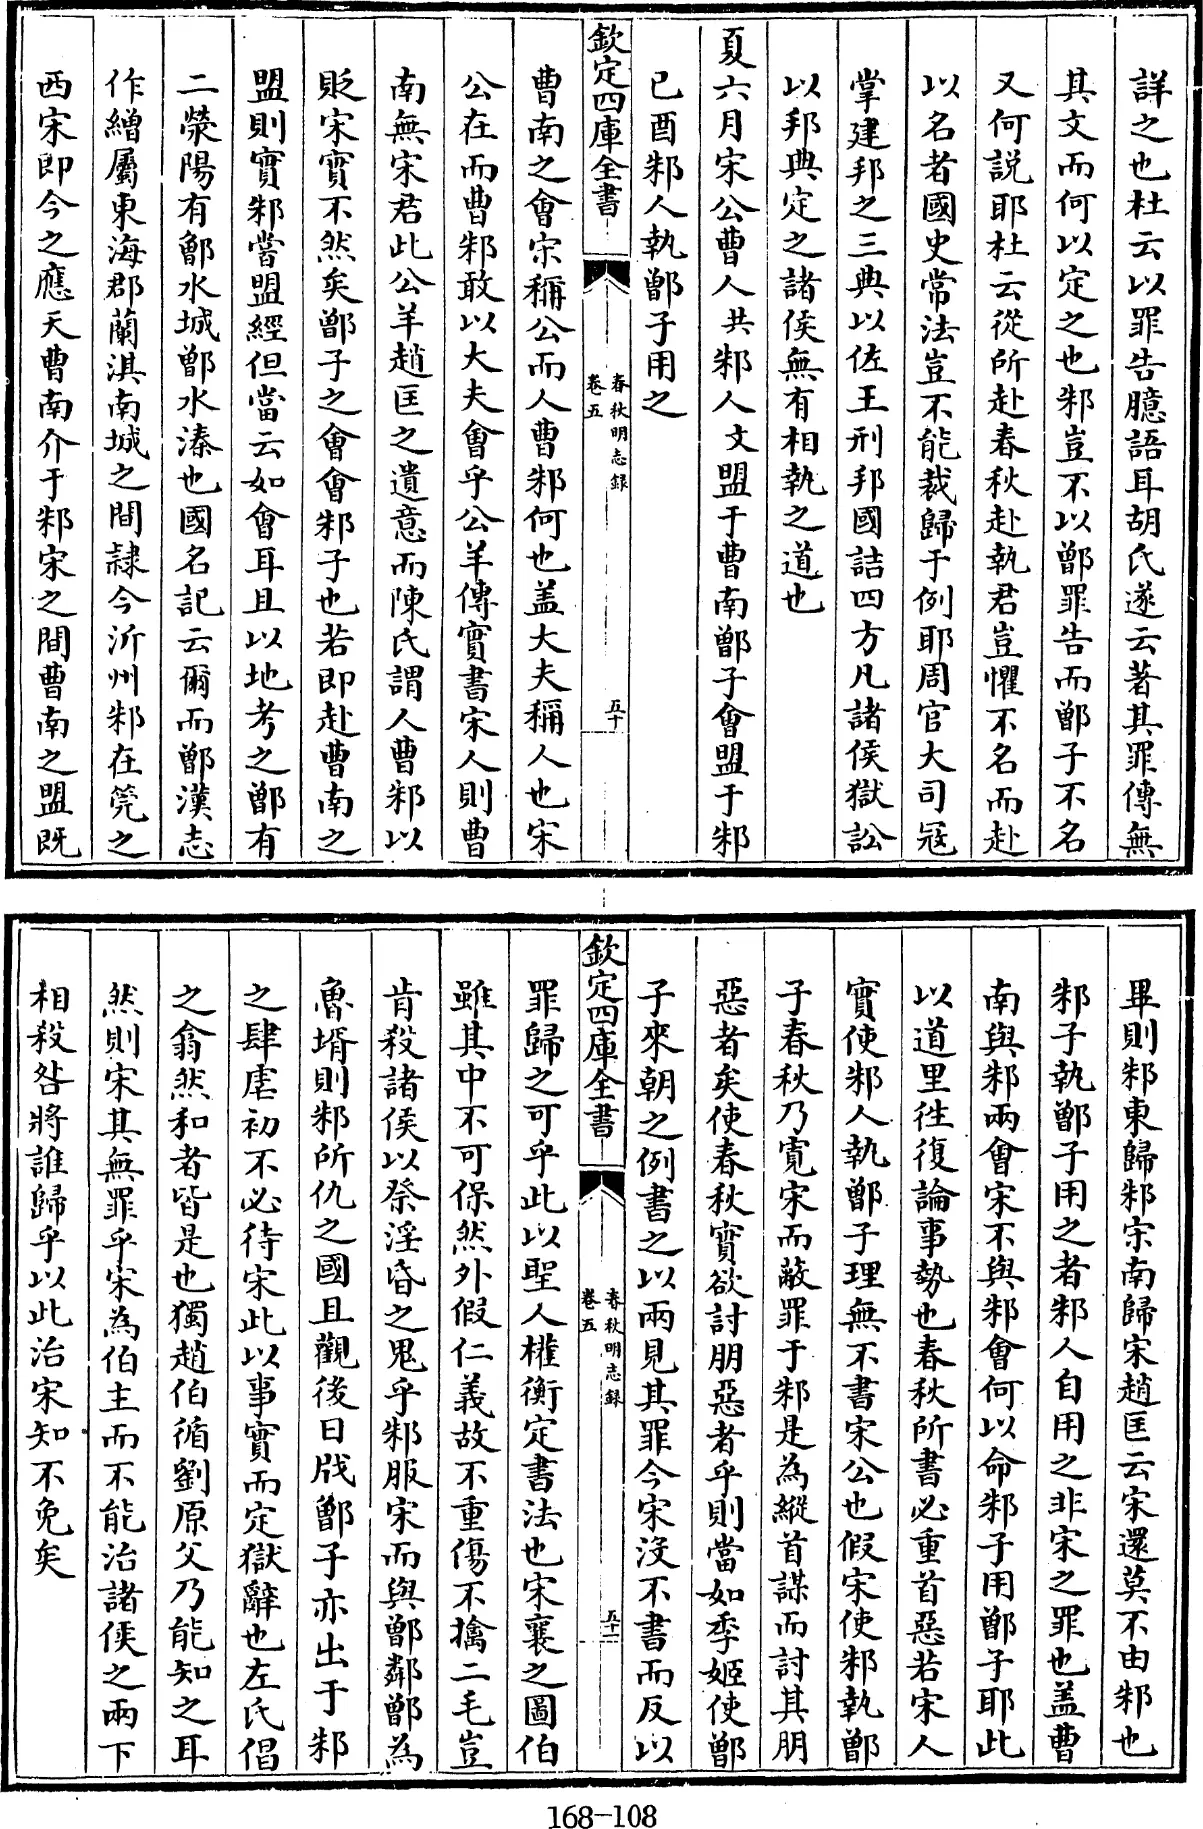 詳之也杜云以罪告臆語耳胡氏遂云著其罪傳無
其文而何以定之也邾豈不以鄫罪告而鄫子不名
又何説耶杜云從所赴春秋赴執君豈懼不名而赴
以名者國史常法豈不能裁歸于例耶周官大司冦
掌建邦之三典以佐王刑邦國詰四方凡諸侯獄訟
以邦典定之諸侯無有相執之道也
夏六月宋公曹人共邾人文盟于曹南鄫子會盟于邾
已酉邾人執鄫子用之
欽定四庫全書
春秋明志録
卷五
五十
曹南之會宋稱公而人曹邾何也盖大夫稱人也宋
公在而曹邾敢以大夫會乎公羊傳實書宋人則曹
南無宋君此公羊趙匡之遺意而陳氏謂人曹邾以
貶宋實不然矣鄫子之會會邾子也若即赴曹南之
盟則實邾嘗盟經但當云如會耳且以地考之鄫有
二滎陽有鄫水城鄫水溱也國名記云爾而鄫漢志
作繒屬東海郡蘭淇南城之間隷今沂州邾在兖之
西宋即今之應天曹南介于邾宋之間曹南之盟既
畢則邾東歸邾宋南歸宋趙匡云宋還莫不由邾也
邾子執鄫子用之者邾人自用之非宋之罪也盖曹
南與邾兩會宋不與邾會何以命邾子用鄫子耶此
以道里往復論事勢也春秋所書必重首惡若宋人
實使邾人執鄫子理無不書宋公也假宋使邾執鄫
子春秋乃寛宋而蔽罪于邾是為縱首謀而討其朋
惡者矣使春秋實欲討朋惡者乎則當如季姬使鄫
子來朝之例書之以兩見其罪今宋沒不書而反以
欽定四庫全書
春秋明志録
卷五
五十一
罪歸之可乎此以聖人權衡定書法也宋襄之圖伯
雖其中不可保然外假仁義故不重傷不擒二毛豈
肯殺諸侯以祭淫昏之鬼乎邾服宋而與鄫鄰鄫為
魯壻則邾所仇之國且觀後日戕鄫子亦出于邾
之肆虐初不必待宋此以事實而定獄辭也左氏倡
之翕然和者皆是也獨趙伯循劉原父乃能知之耳
然則宋其無罪乎宋為伯主而不能治諸侯之兩下
相殺咎將誰歸乎以此治宋知不免矣
168-108